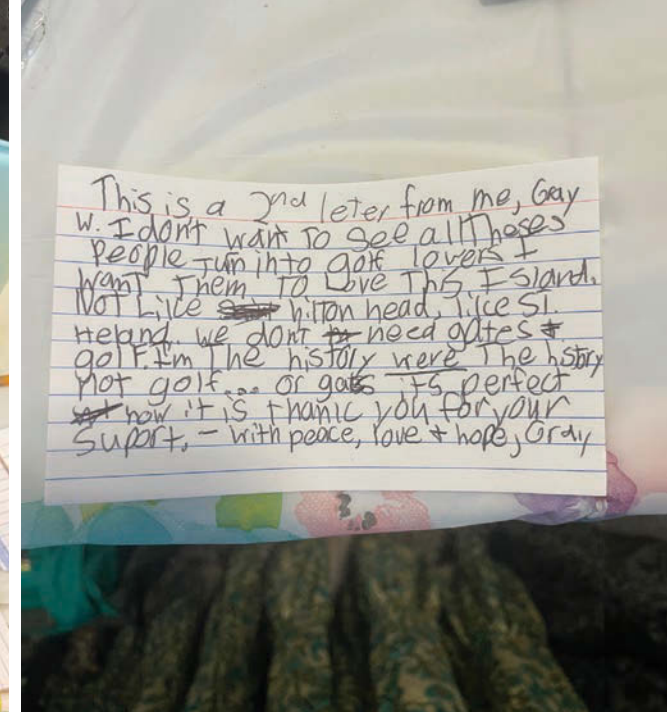 This is a 2nd leter from me, Gray
W. I dont want To see all Theses
people turn into golf lovers I
want Them To Love This Island.
Not Like hilton head, like St.
Heland, we dont need gates +
golf. I'm The history were The history
not golf... or gats its perfect
how it is thank you for your
suport, - with peace, love + hope, Gray